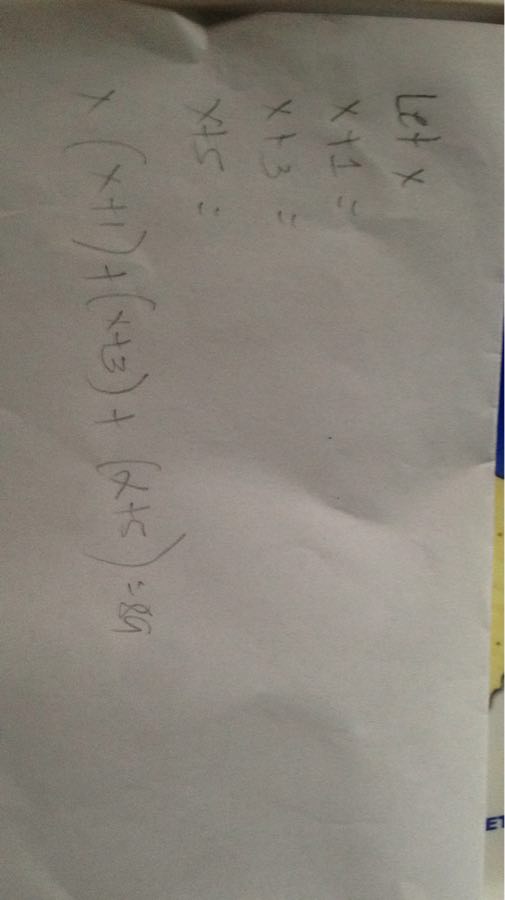 Let x
x+1 =
x+3 =
x+5 =
x (x+1) + (x+3) + (x+5) = 89
ET